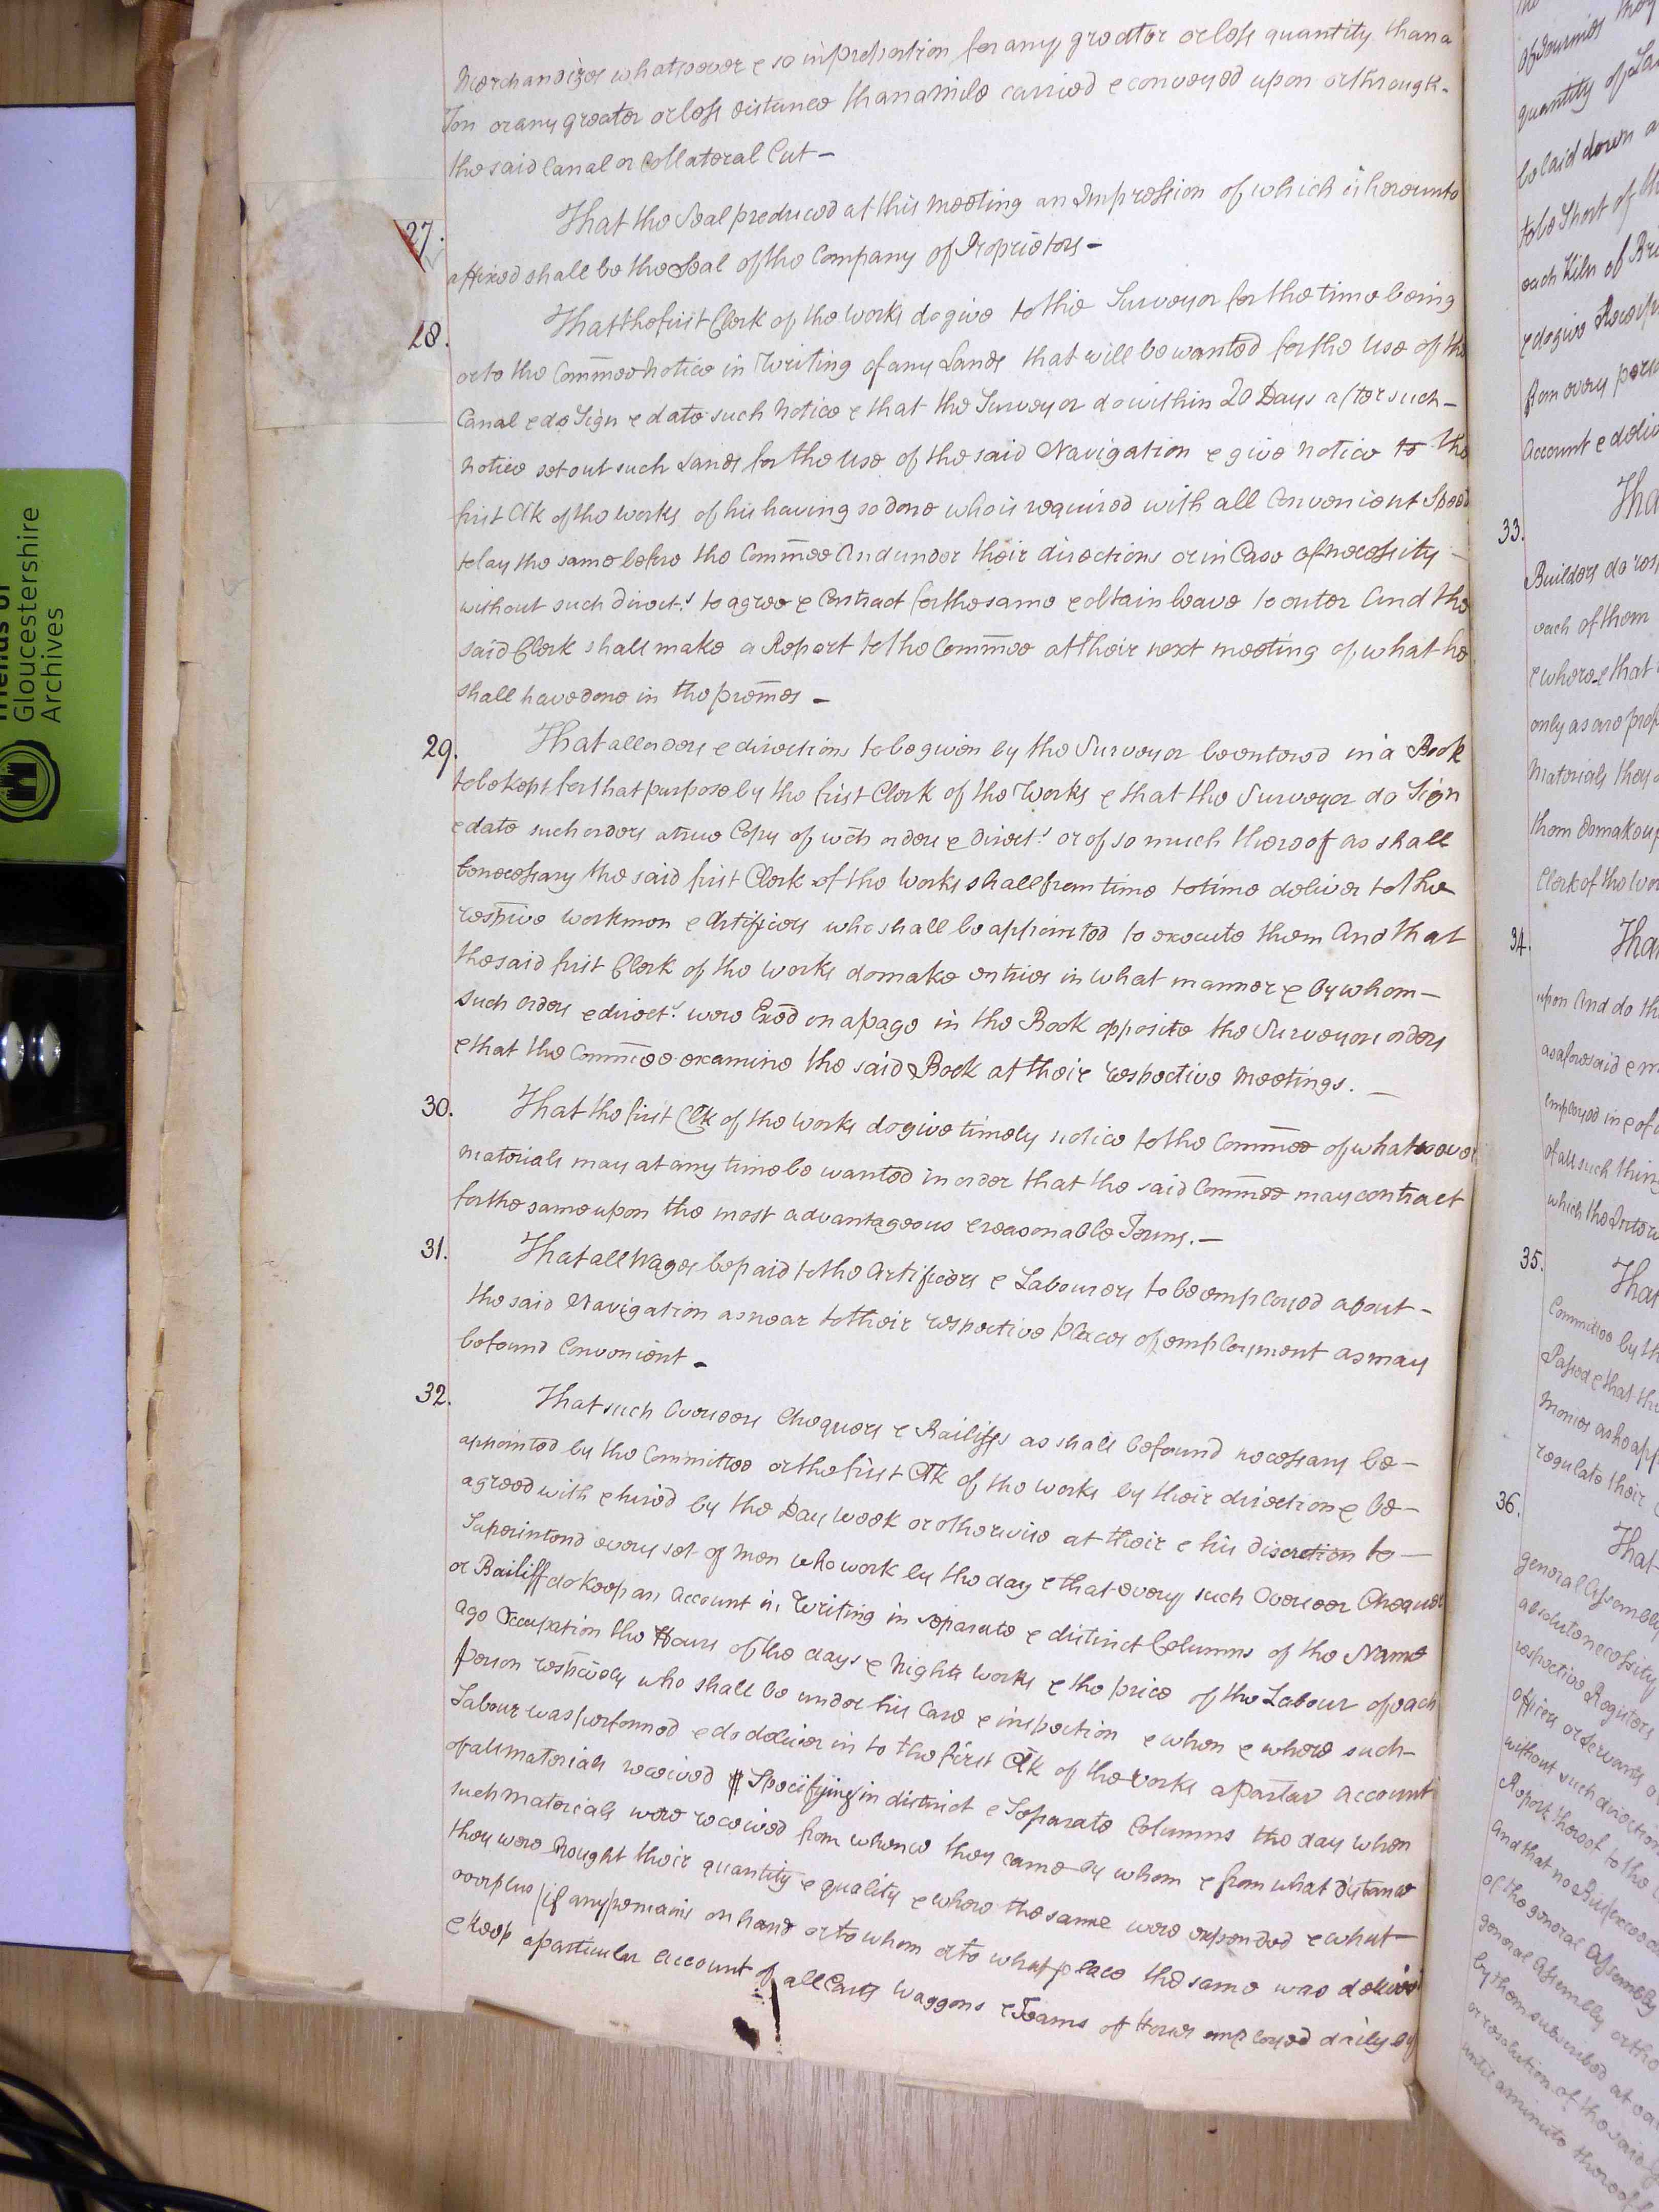 Merchandizes whatsoever & so in proportion for any greater or less quantity than a
Ton or any greater or less distance than a Mile carried & conveyed upon or through
the said Canal or Collateral Cut –
27. That the Seal produced at this Meeting an Impression of which is hereunto
affixed shall be the Seal of the Company of Proprietors –
28. That the first Clerk of the Works do give to the Surveyor for the time being
or to the Com̄ee Notice in Writing of any Lands that will be wanted for the Use of the
Canal & do Sign & date such Notice & that the Surveyor do within 20 Days after such –
Notice set out such Lands for the Use of the said Navigation & give Notice to the
first Clk of the Works of his having so done who is required with all Convenient Speed
to lay the same before the Com̄ee And under their directions or in Case of necessity –
without such direct.s to agree & Contract for the same & obtain leave to enter And the
said Clerk shall make a Report to the Com̄ee at their next meeting of what he
shall have done in the prem̄es –
29. That all orders & directions to be given by the Surveyor be entered in a Book
to be kept for that purpose by the first Clerk of the Works & that the Surveyor do Sign
& date such orders a true Copy of wch orders & direct.s or of so much thereof as shall
be necessary the said first Clerk of the Works shall from time to time deliver to the
respīve Workmen & Artificers who shall be appointed to execute them And that
the said first Clerk of the Works do make entries in what manner & by whom –
such orders & direct.s were Exēd on a page in the Book opposite the Surveyors orders
& that the Com̄ee examine the said Book at their respective Meetings. –
30. That the first Clk of the Works do give timely notice to the Com̄ee of whatsoever
Materials may at any time be wanted in order that the said Com̄ee may contract
for the same upon the most advantageous & reasonable Terms. –
31. That all Wages be paid to the Artificers & Labourers to be employed about –
the said Navigation as near to their respective places of employment as may
be found Convenient –
32. That such Overseers Chequers & Bailiffs as shall be found necessary be –
appointed by the Committee or the first Clk of the Works by their direction & be –
agreed with & hired by the Day Week or otherwise at their & his discretion to –
Superintend every set of Men who work by the day & that every such Overseer Chequer
or Bailiff do keep an Account in Writing in separate & distinct Columns of the Name
age Occupation the Hours of the days & Nights Works & the price of the Labour of each
person respīvely who shall be under his Care & inspection & when & where such –
Labour was performed & do deliver in to the first Clk of the Works a Partar Account
of all Materials received Specifying in distinct & Separate Columns the day when
such Materials were received from whence they came by whom & from what distance
they were brought their quantity & quality & where the same were expended & what –
overplus (if any) remains on hand or to whom or to what place the same was delivered
& keep a particular Account of all Carts Waggons & Teams of Horses employed daily by
of
quantity of
be laid down
to be Short of
each Kiln of
& do give
from every
Account &
33. Tha
Builders do
each of them
& where & that
only as are
Materials they
them do make
Clerk of the
34. Tha
upon And do
as aforesaid &
employed in & of
of all such
which the
35. That
Committee by
& that
Monies as
regulate their
36. That
general Assembly
absolute necessity
respective Registers
Officers or Servants
without such direction
Report thereof to the
And that no
of the general Assembly
general Assembly or the
by them subscribed at
or resolution of the said
until a minute thereof
Friends of
Gloucestershire
Archives